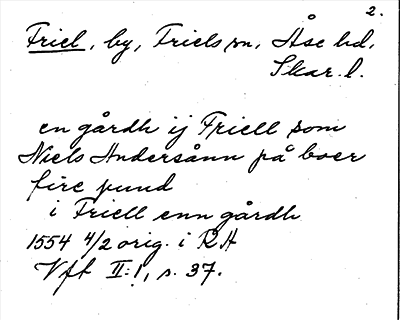 2.
Friel, by, Friels sn, Åse hd,
Skar. l.
en gårdh ij Friell som
Niels Andersånn på boer
fire pund
i Friell enn gårdh
1554 4/2 orig. i RA
Vft II:1, s. 37.